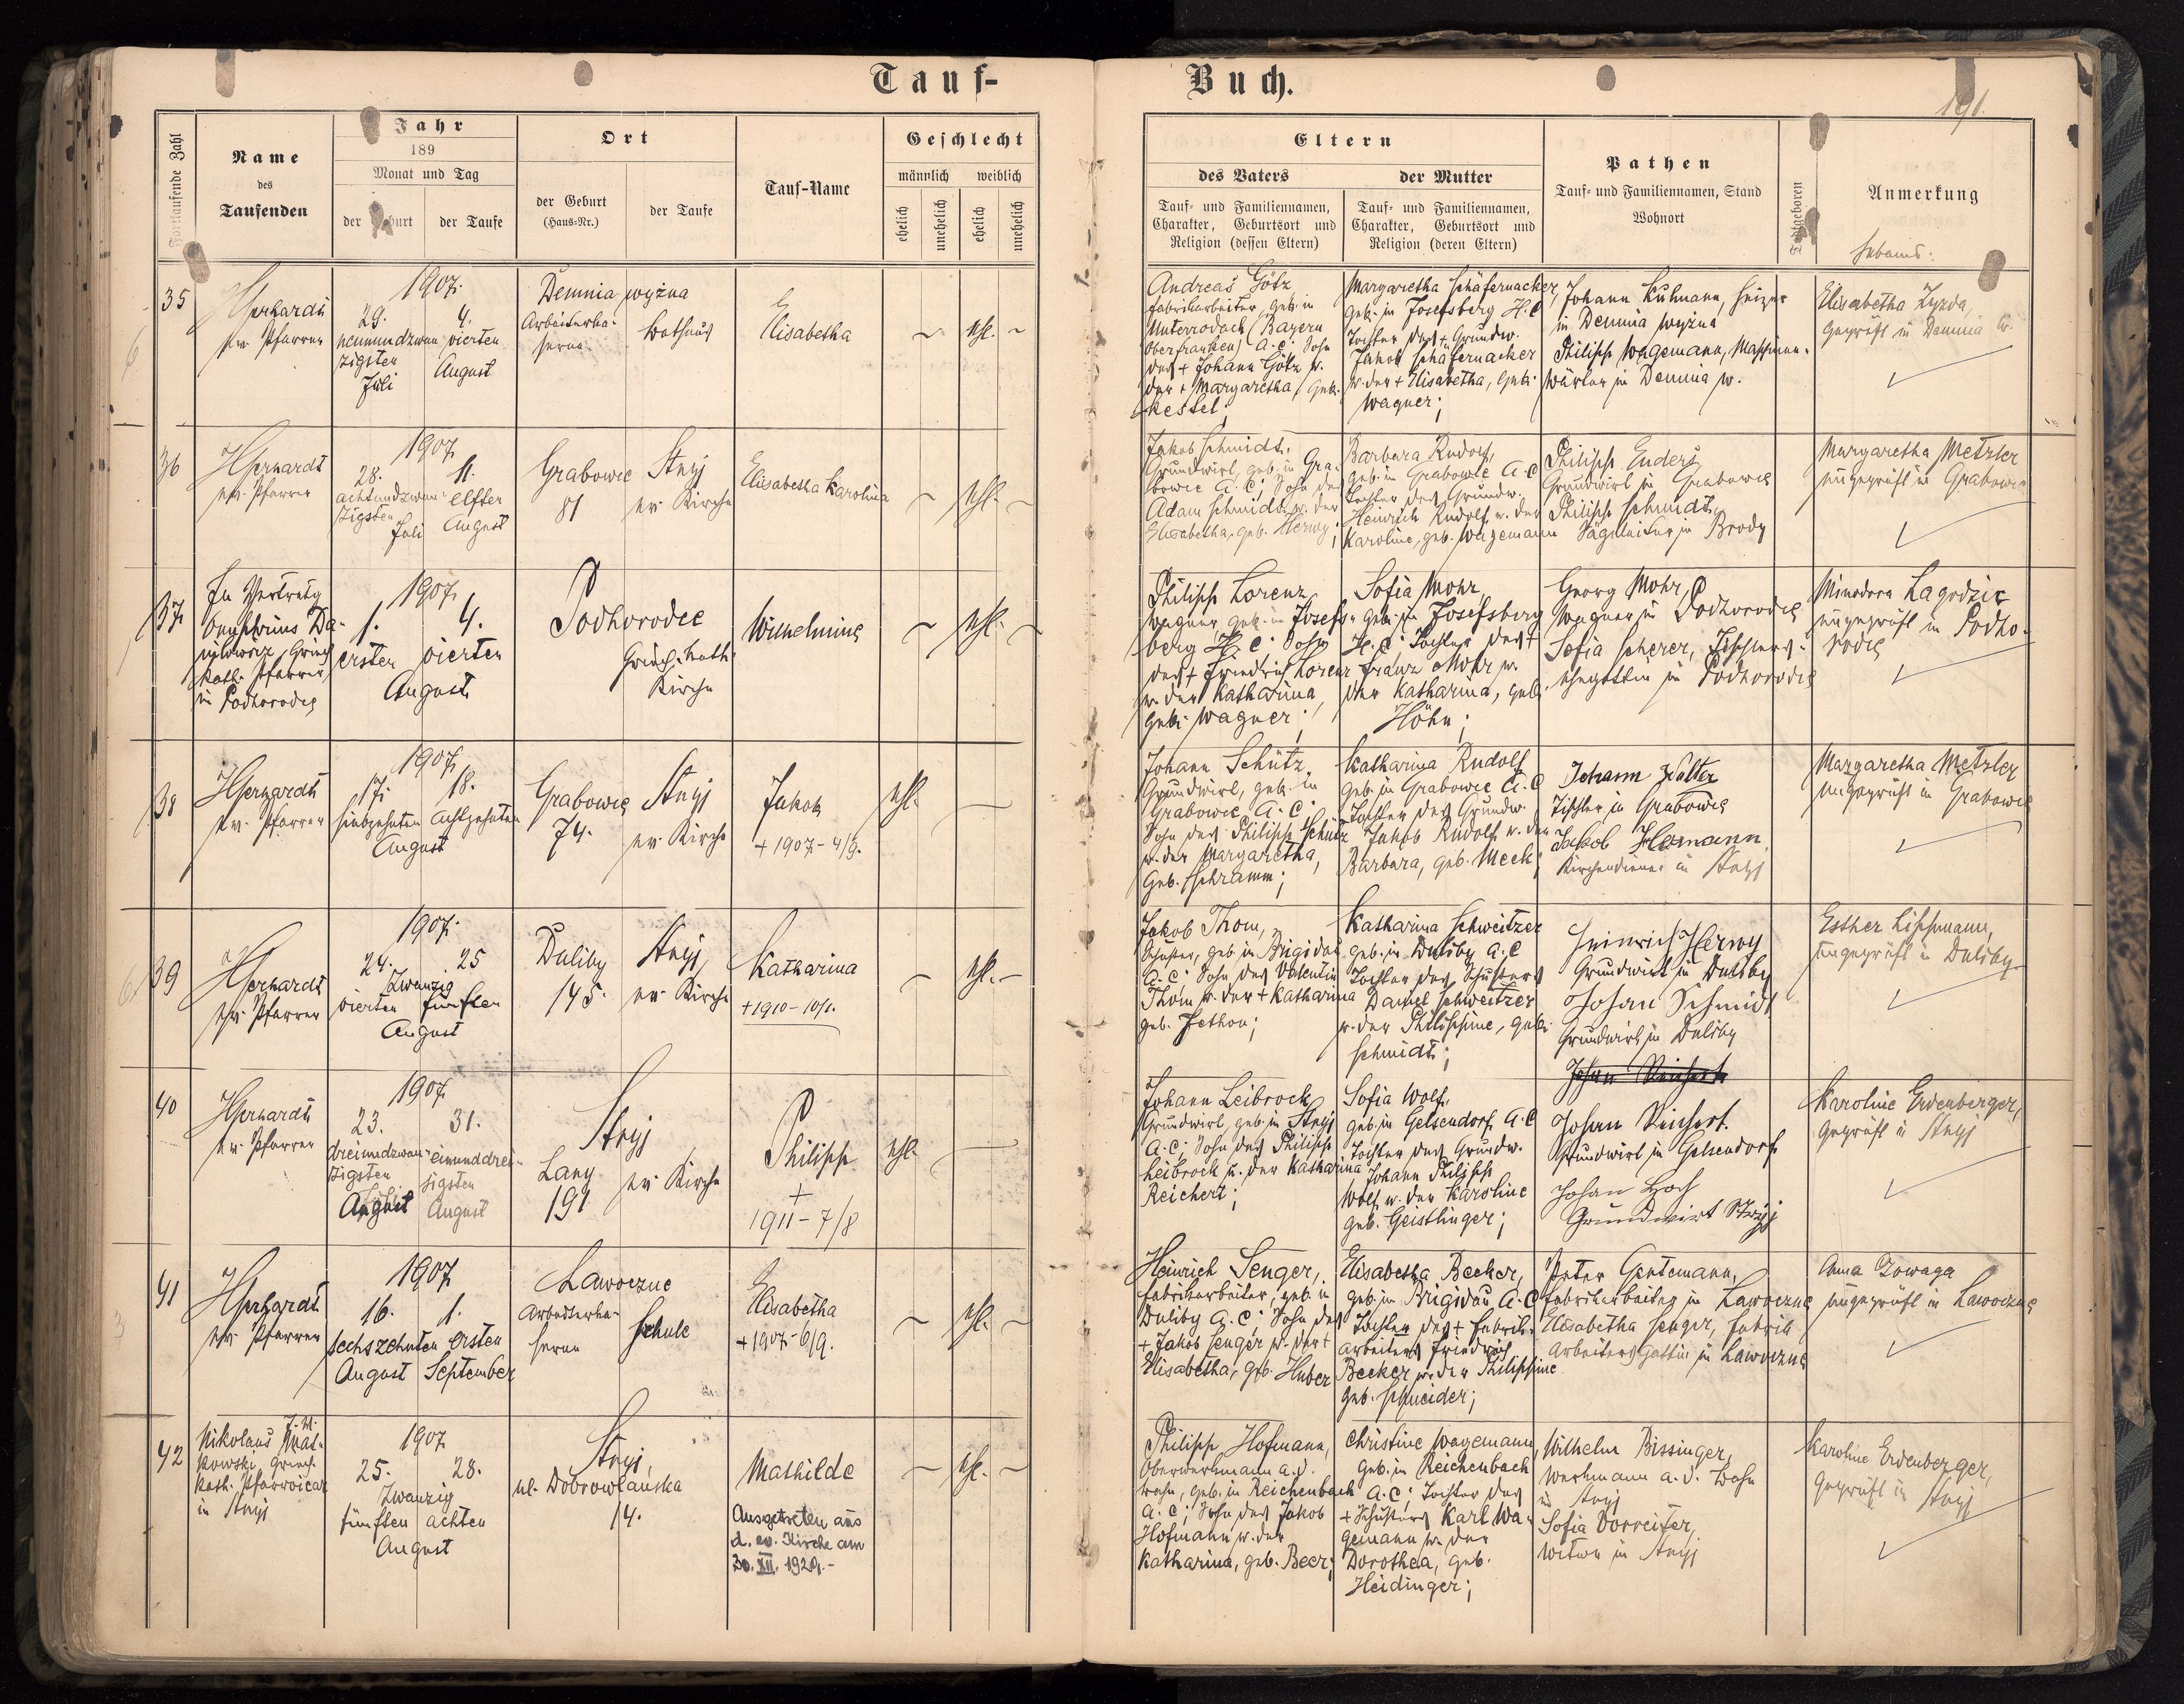 Tauf-
Buch.
191.
Fortlaufende Zahl
Name
des
Taufenden
Jahr
189
Monat und Tag
der Geburt
der Taufe
Ort
der Geburt
(Haus-Nr.)
der Taufe
Tauf-Name
Geschlecht
männlich weiblich
ehelich
unehelich
ehelich
unehelich
Eltern
des Vaters
Tauf- und Familiennamen,
Charakter, Geburtsort und
Religion (dessen Eltern)
der Mutter
Tauf- und Familiennamen,
Charakter, Geburtsort und
Religion (deren Eltern)
Pathen
Tauf- und Familiennamen, Stand
Wohnort
Todtgeboren
Anmerkung
Hebamme:
35
ev. Pfarrer
1907.
29.
neunundzwan
zigsten
Juli
4.
vierten
August
Demnia wyżna
Arbeiterka-
serne
Bethaus
Elisabetha
ehl.
Andreas Götz
Fabriksarbeiter, geb. in
Unterrodach (Bayern
Oberfranken) A. C. Sohn
des + Johann Götz u.
der + Margaretha, geb.
Kessel;
Margaretha Schäfernacker,
geb. in Josefsberg H. C
Tochter des + Grundw.
Jakob Schäfernacker
u. der + Elisabetha, geb.
Wagner;
Johann Kuhmann, Heizer
in Demnia wyżna
Philipp Wagemann, Maschinen-
wärter in Demnia w.
Elisabetha Zyzda,
geprüft in Demnia w.
36
ev. Pfarrer
1907
28.
achtundzwan-
zigsten
Juli
11.
elften
August
Grabowie
81
Stryj
ev. Kirche
Elisabetha Karolina
ehl.
Jakob Schmidt,
Grundwirt, geb. in Gra-
bowie A. C; Sohn des
Adam Schmidt u. der
Elisabetha, geb. Herwy;
Barbara Rudolf,
geb. in Grabowie A. C
Tochter des Grundw.
Heinrich Rudolf u. der
Karoline, geb. Wagemann
Philipp Enders
Grundwirt in Grabowie
Philipp Schmidt,
Sägeleiter in Brody
Margaretha Metzler
ungeprüft in Grabowie
37
In Vertretg
Onuphrius Da-
Griech.
kath. Pfarrer,
in Podhorodce
1907
1.
ersten
4.
vierten
August
Podhorodce
Griech. kath.
Kirche
Wilhelmine
ehl.
Philipp Lorenz
Wagner, geb. in Josefs-
berg H. C; Sohn
des + Friedrich Lorenz
u. der Katharina,
geb. Wagner;
Sofia Mohr
geb. in Josefsberg
H. C; Tochter des +
Franz Mohr u.
der Katharina, geb.
Höhn;
Georg Mohr,
Wagner in Podhorodce
Sofia Scherer, Tischlers-
ehegattin in Podhorodce
Minodora Lagodzic
ungeprüft in Podho-
rodce
38
ev. Pfarrer
1907
17.
siebzehnten
18.
achtzehnten
August
Grabowie
74.
Stryj
ev. Kirche
Jakob
+ 1907 - 4/9.
ehl.
Johann Schütz,
Grundwirt, geb. in
Grabowie A. C.
Sohn des Philipp Schütz
u. der Margaretha,
geb. Schramm;
Katharina Rudolf
geb. in Grabowie A. C
Tochter des Grundw.
Jakob Rudolf u. der
Barbara, geb. Meck;
Johann Walter
Tischler in Grabowie
Jakob Hermann
Kirchendiener in Stryj
Margaretha Metzler
ungeprüft in Grabowie
39
ev. Pfarrer
1907.
24.
25
zwanzig
vierten fünften
August
Duliby
145.
Stryj,
ev. Kirche
Katharina
+ 1910 - 10/1.
ehl.
Jakob Thom,
Schuster, geb. in Brigidau
A. C; Sohn des Valentin
Thom u. der + Katharina
geb. Jethon;
Katharina Schweitzer
geb. in Duliby A. C
Tochter des Schusters
Daniel Schweitzer
u. der Philippine, geb.
Schmidt;
Heinrich Herwy
Grundwirt in Duliby
Johan Schmidt
Grundwirt in Duliby
Esther Lippmann,
ungeprüft in Duliby
40
ev. Pfarrer
1907
23.
dreiundzwan-
zigsten
August
31.
einunddrei-
zigsten
August
Stryj
Lany
191
ev. Kirche
Philipp
+
1911 - 7/8
ehl.
Johann Leibrock
Grundwirt, geb. in Stryj
A. C; Sohn des Philipp
Leibrock u. der Katharina
Reichert;
Sofia Wolf,
geb. in Gelsendorf A. C
Tochter des Grundw.
Johann Philipp
Wolf u. der Karoline
geb. Geistlinger;
Johan Reichert
Johan Reichert.
Grundwirt in Gelsendorf
Johan Hoch
Grundwirt Stryj
Karoline Erdenberger,
geprüft in Stryj
41
ev. Pfarrer
1907
16.
sechszehnten
August
1.
ersten
September
Lawoczne
Arbeiterka-
serne
Schule
Elisabetha
+ 1907 - 6/9.
ehl.
Heinrich Senger,
Fabriksarbeiter, geb. in
Duliby A. C; Sohn des
+ Jakob Senger u. der +
Elisabetha, geb. Huber
Elisabetha Becker,
geb. in Brigidau A. C
Tochter des + Fabriks-
arbeiters Friedrich
Becker u. der Philippine
geb. Schneider;
Peter Gentemann,
Fabriksarbeiter in Lawoczne
Elisabetha Senger, Fabrik
Arbeiters Gattin in Lawoczne
Anna Zowaga
ungeprüft in Lawoczne
42
Nikolaus Mat-
kowski, griech.
kath. Pfarrvicar
in Stryj
1907
25.
28.
zwanzig
fünften achten
August
Stryj,
ul. Dobrowlańska
14.
Mathilde
Ausgetreten aus
d. ev. Kirche am
30. XII. 1929.-
ehl.
Philipp Hofmann,
Oberwerkmann a. d.
Bahn, geb. in Reichenbach
A. C; Sohn des Jakob
Hofmann u. der
Katharina, geb. Beer;
Christine Wagemann,
geb. in Reichenbach
A. C; Tochter des
+ Schusters Karl Wa-
gemann u. der
Dorothea, geb.
Heidinger;
Wilhelm Bissinger,
Werkmann a. d. Bahn
in Stryj
Sofia Dorreifer,
Witwe in Stryj
Karoline Erdenberger,
geprüft in Stryj